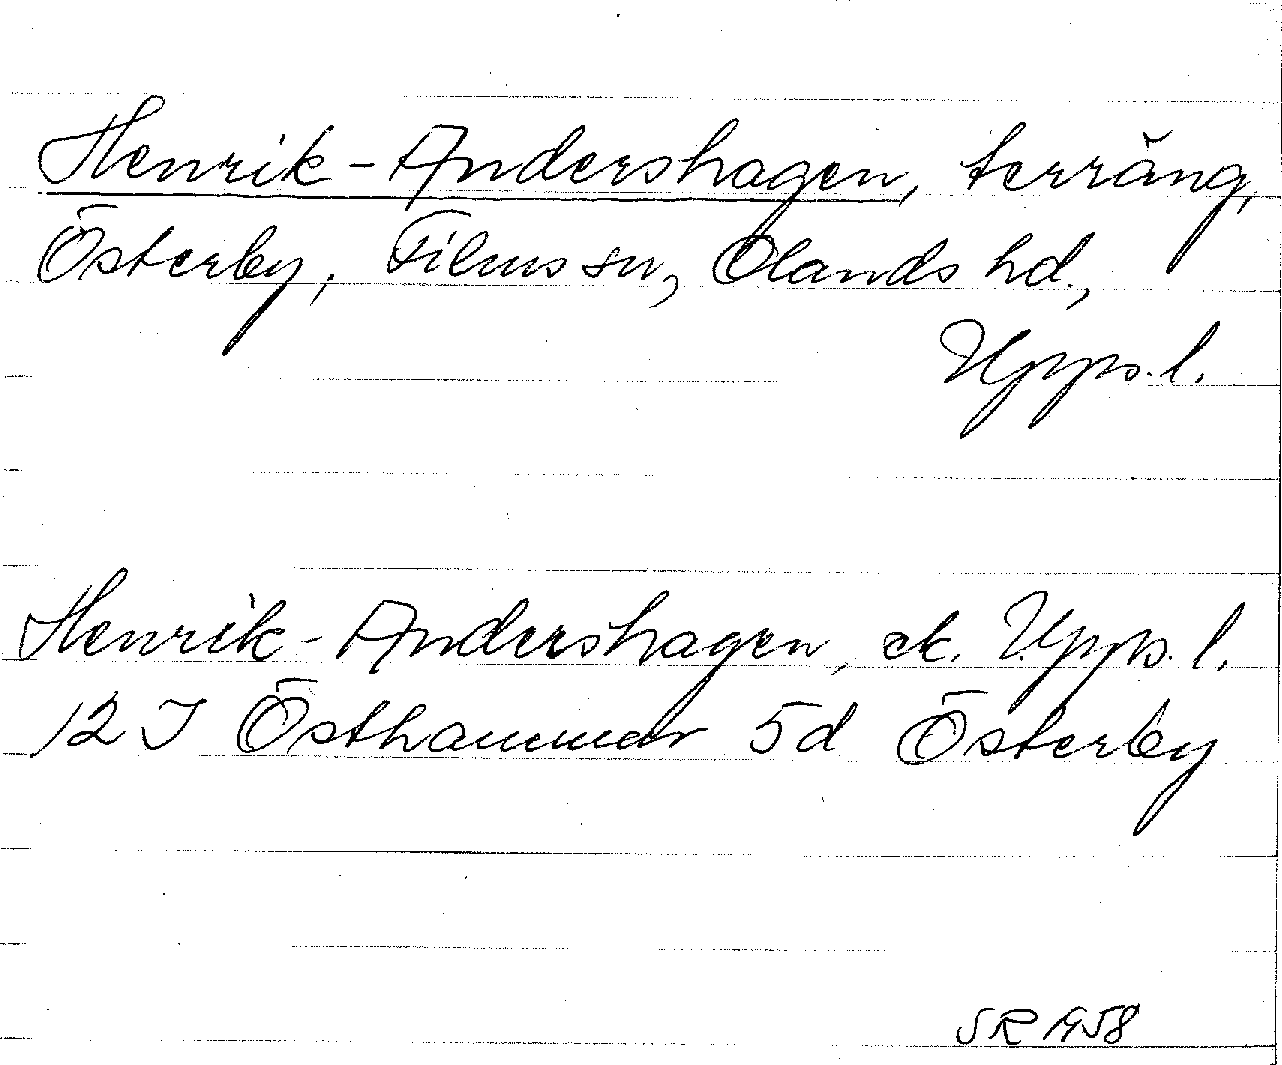 Henrik-Andershagen, terräng,
Österby, Films sn, Olands hd.,
Upps. l.
Henrik-Andershagen, ek. Upps. l.
12 I Östhammar 5d Österby
SR 1958